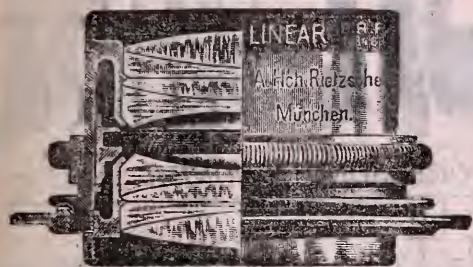 LINEAR
A. Hch. Rietzsche
München.